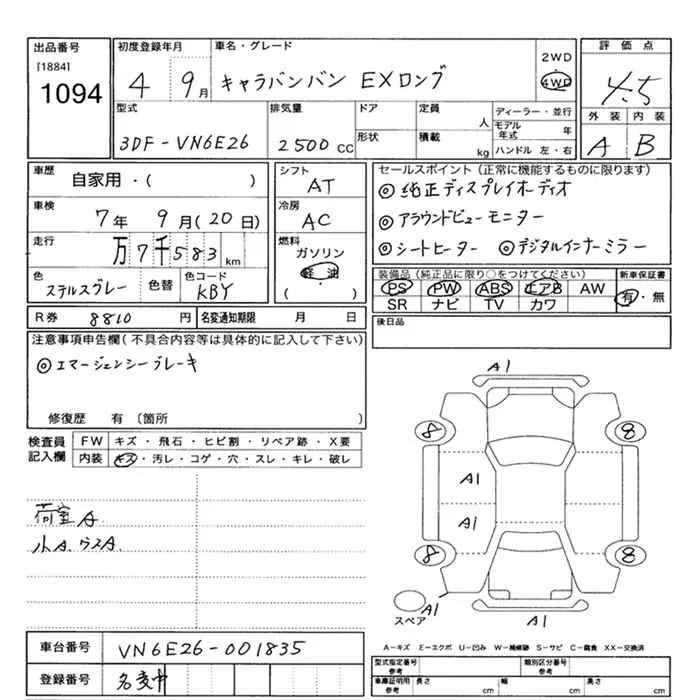 出品番号
[1884]
1094
初度登録年月
4 9月
車名・グレード
キャラバンバン EXロング
2WD
4WD
評価点
4.5
外装 内装
A B
型式
3DF-VN6E26
排気量
2500 CC
ドア
形状
定員
人
積載
kg
ディーラー・並行
モデル年式 年
ハンドル 左・右
車歴
自家用・( )
車検
7年 9月(20日)
走行
万7千583km
色
ステルスグレー
色替
色コード
KBY
シフト
AT
冷房
AC
燃料
ガソリン
軽油
( )
セールスポイント(正常に機能するものに限ります)
◎純正ディスプレイオーディオ
◎アラウンドビューモニター
◎シートヒーター ◎デジタルインナーミラー
装備品(純正品に限り○をつけてください)
PS PW ABS エアB AW
SR ナビ TV カワ
新車保証書
有・無
R券 8810 円
名変通知期限 月 日
後日品
注意事項申告欄(不具合内容等は具体的に記入して下さい)
◎エマージェンシーブレーキ
修復歴 有 〔箇所 〕
検査員記入欄
FW キズ・飛石・ヒビ割・リペア跡・X要
内装 キズ・汚レ・コゲ・穴・スレ・キレ・破レ
荷室A
小A.ウスA.
A1
8 8
A1
A1
8 8
スペア
A1
A1
車台番号 VN6E26-001835
登録番号 名変中
A-キズ E-エクボ U-凹み W-補修跡 S-サビ C-腐食 XX-交換済
型式指定番号
参考
類別区分番号
参考
車庫証明用
参考
長さ cm
幅 cm
高さ cm